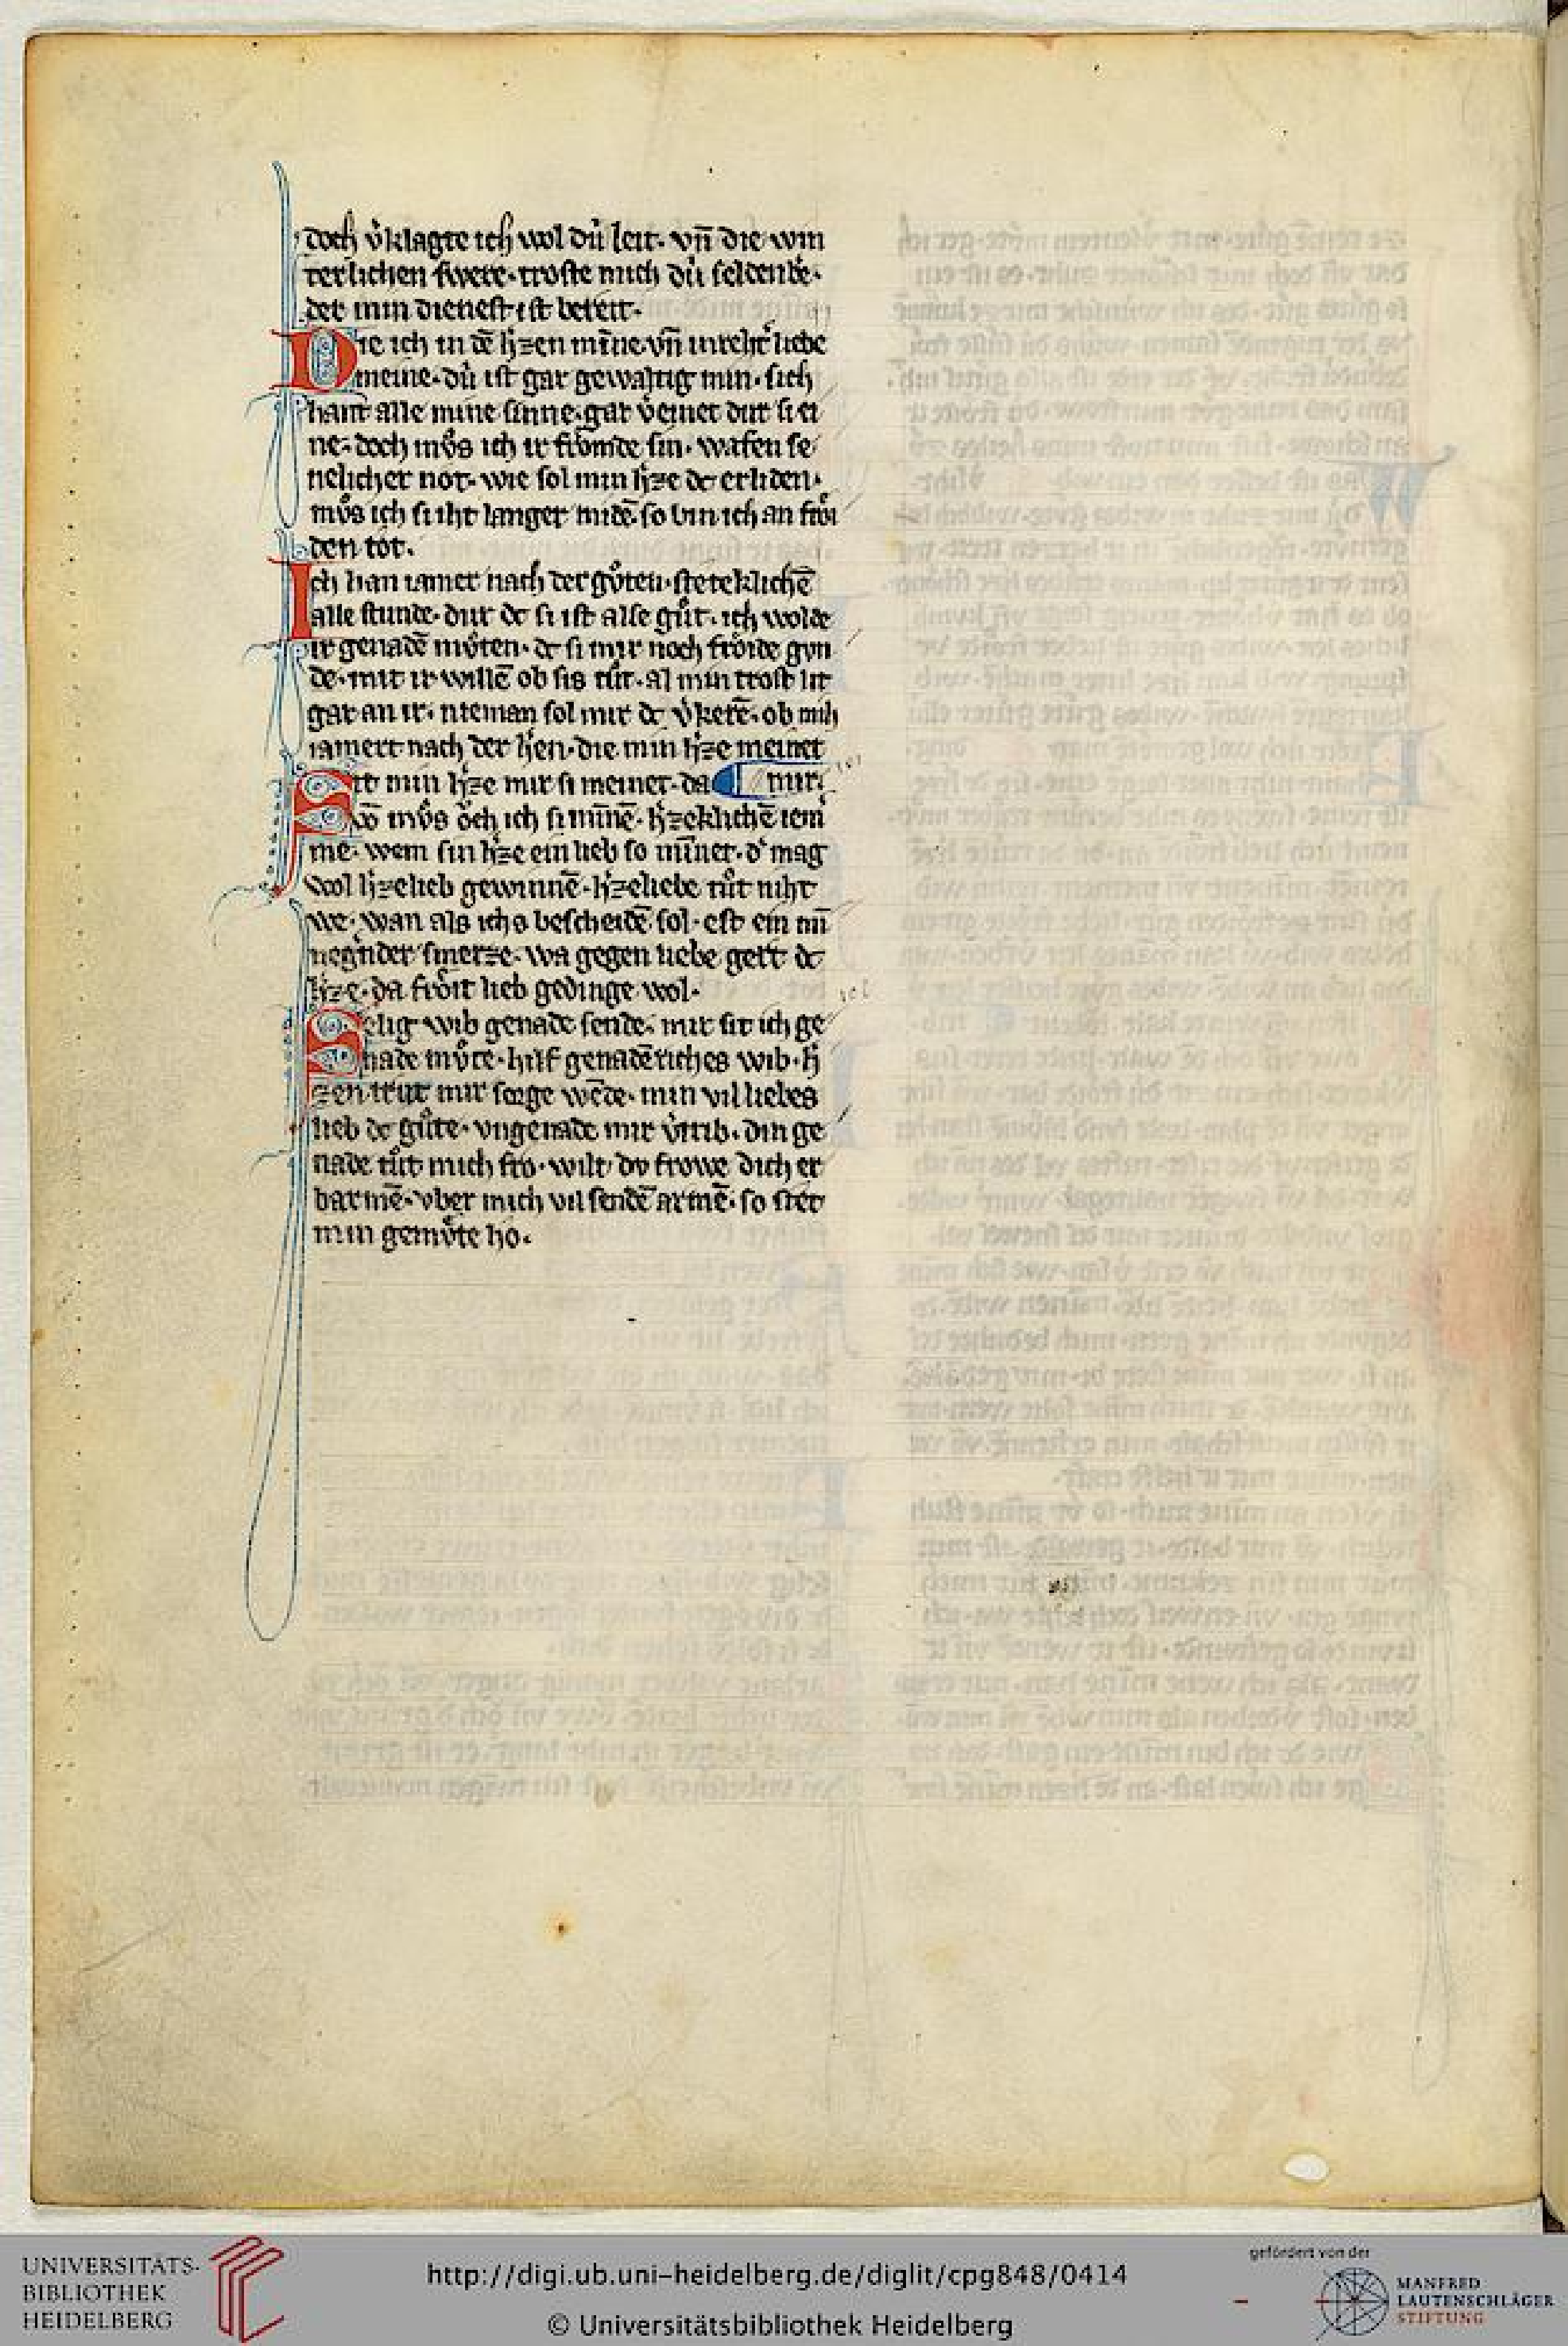 doch v̾klagte ich wol dú leit. vn̄ die win
terlichen swere. troste mich dú seldenbe̾.
der min dienest ist bereit.
Die ich in dē h̾zen mīne. vn̄ in reht̾ liebe
meine. dú ist gar gewaltig min. sich
hant alle mine sinne. gar v̾einet dur si ei
ne. doch mǔs ich ir frömde sin. wafen se
nelicher not. wie sol min h̾ze dc erliden.
mǔs ich si iht langer midē. so bin ich an fröi
den tot.
Ich han iamer nach der gůten. steteklichē
alle stunde. dur dc si ist alse gůt. ich wolde
ir genadē můten. dc si mir noch fröide gvn
de. mit ir willē ob sis tůt. al min trost lit
gar an ir. nieman sol mir dc v̾kerē. ob mih
iamert nach der h̾en. die min h̾ze meinet
Sit min h̾ze mir si meinet. da mir.
vō mǔs ǒch ich si mīnē. h̾zeklichē iem̄
me. wem sin h̾ze ein lieb so mīnet. d̾ mag
wol h̾zelieb gewinnē. h̾zeliebe tůt niht
we. wan als ichs bescheidē sol. est ein mī
neg̾nder smerze. wa gegen liebe gert dc
h̾ze. da fröit lieb gedinge wol.
Selig wib genade sende. mir sit ich ge
nade můte. hilf genadēriches wib. h̾
zen trut mir sorge wēde. min vil liebes
lieb dc gůte. vngenade mir v̾trib. din ge
nade tůt mich fro. wilt dv frowe dich er
barmē. vber mich vil sendē armē. so stet
min gemůte ho.
UNIVERSITÄTS-
BIBLIOTHEK
HEIDELBERG
http://digi.ub.uni-heidelberg.de/diglit/cpg848/0414
© Universitätsbibliothek Heidelberg
gefördert von der
MANFRED
LAUTENSCHLÄGER
STIFTUNG